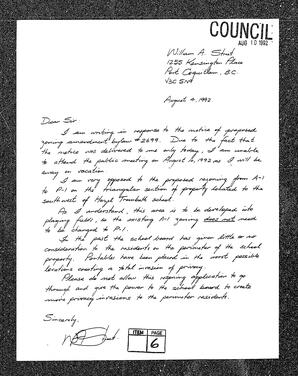 COUNCIL
AUG 10 1992
William A.
1255 Kensington Place
Port Coquitlam, B.C.
V3C
August 4, 1992
Dear Sir:
I am writing in response to the notice of proposed
zoning amendment bylaw #2699. Due to the fact that
the notice was delivered to me only today, I am unable
to attend the public meeting on August 1992 as I will be
away on vacation.
I am very opposed to the proposed rezoning from A-1
to P-1 on the triangular section of property located to the
southwest of Hazel Trembath school.
As I understand, this area is to be developed into
playing fields, so the existing A-1 zoning does not need
to be changed to P-1.
In the past the school board has given little or no
consideration to the residents on the perimeter of the school
property. Portables have been placed in the worst possible
locations creating a total invasion of privacy.
Please do not allow this rezoning application to go
through and give the power to the school board to create
more privacy invasions to the perimeter residents.
Sincerely,
ITEM PAGE
6